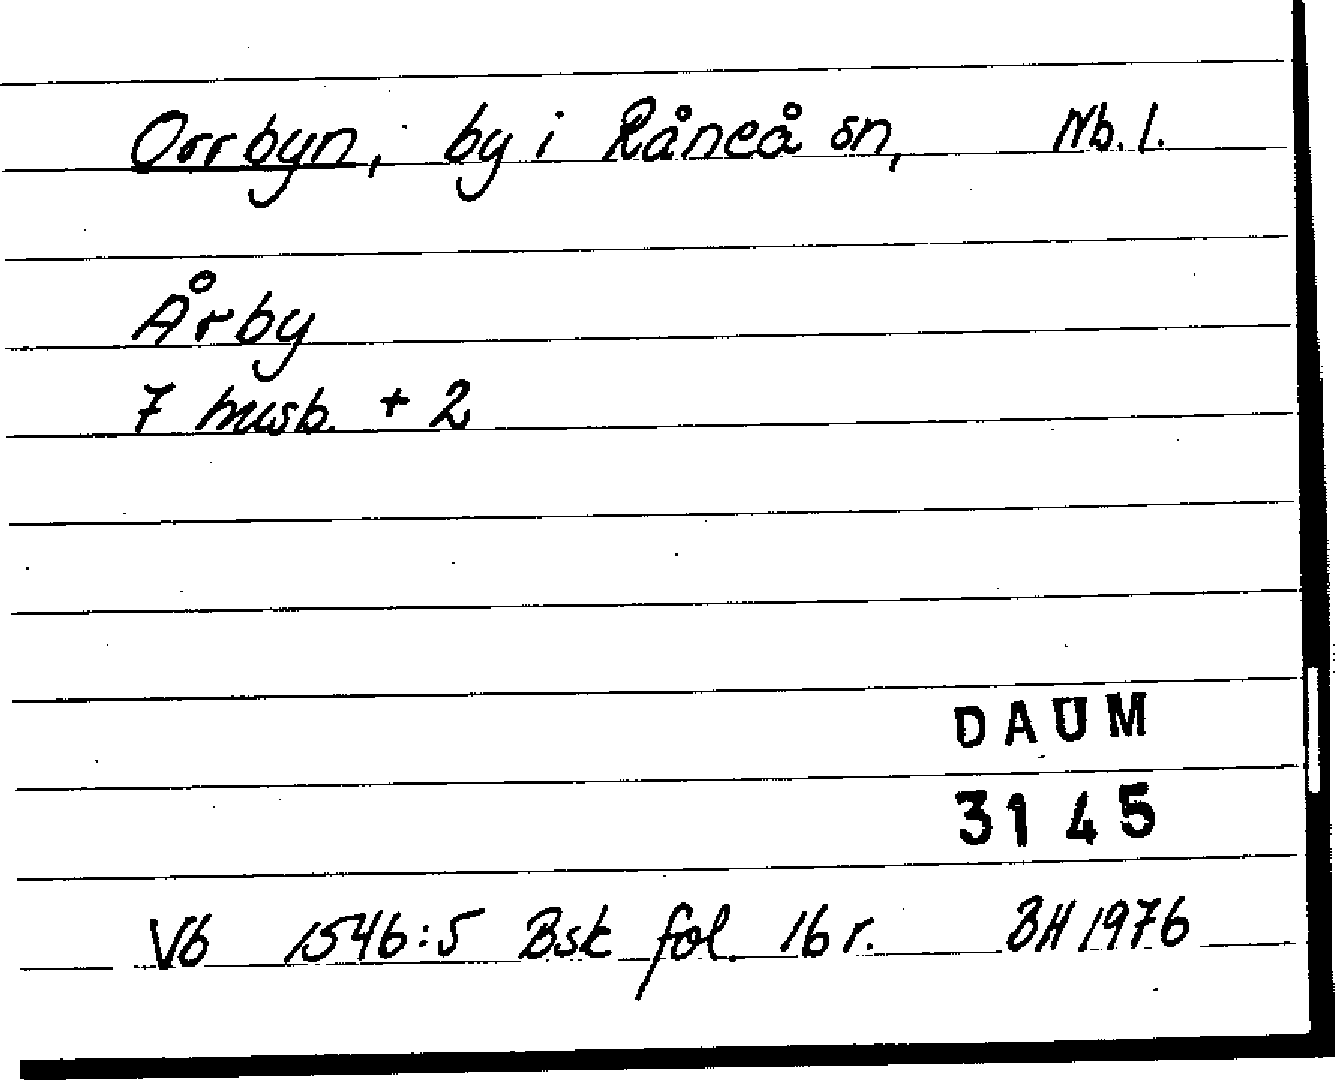 Orrbyn, by i Råneå sn, Nb. l.
Årby
7 husb. + 2
DAUM
3145
Vb 1546:5 Bsk fol. 16 r. BH 1976